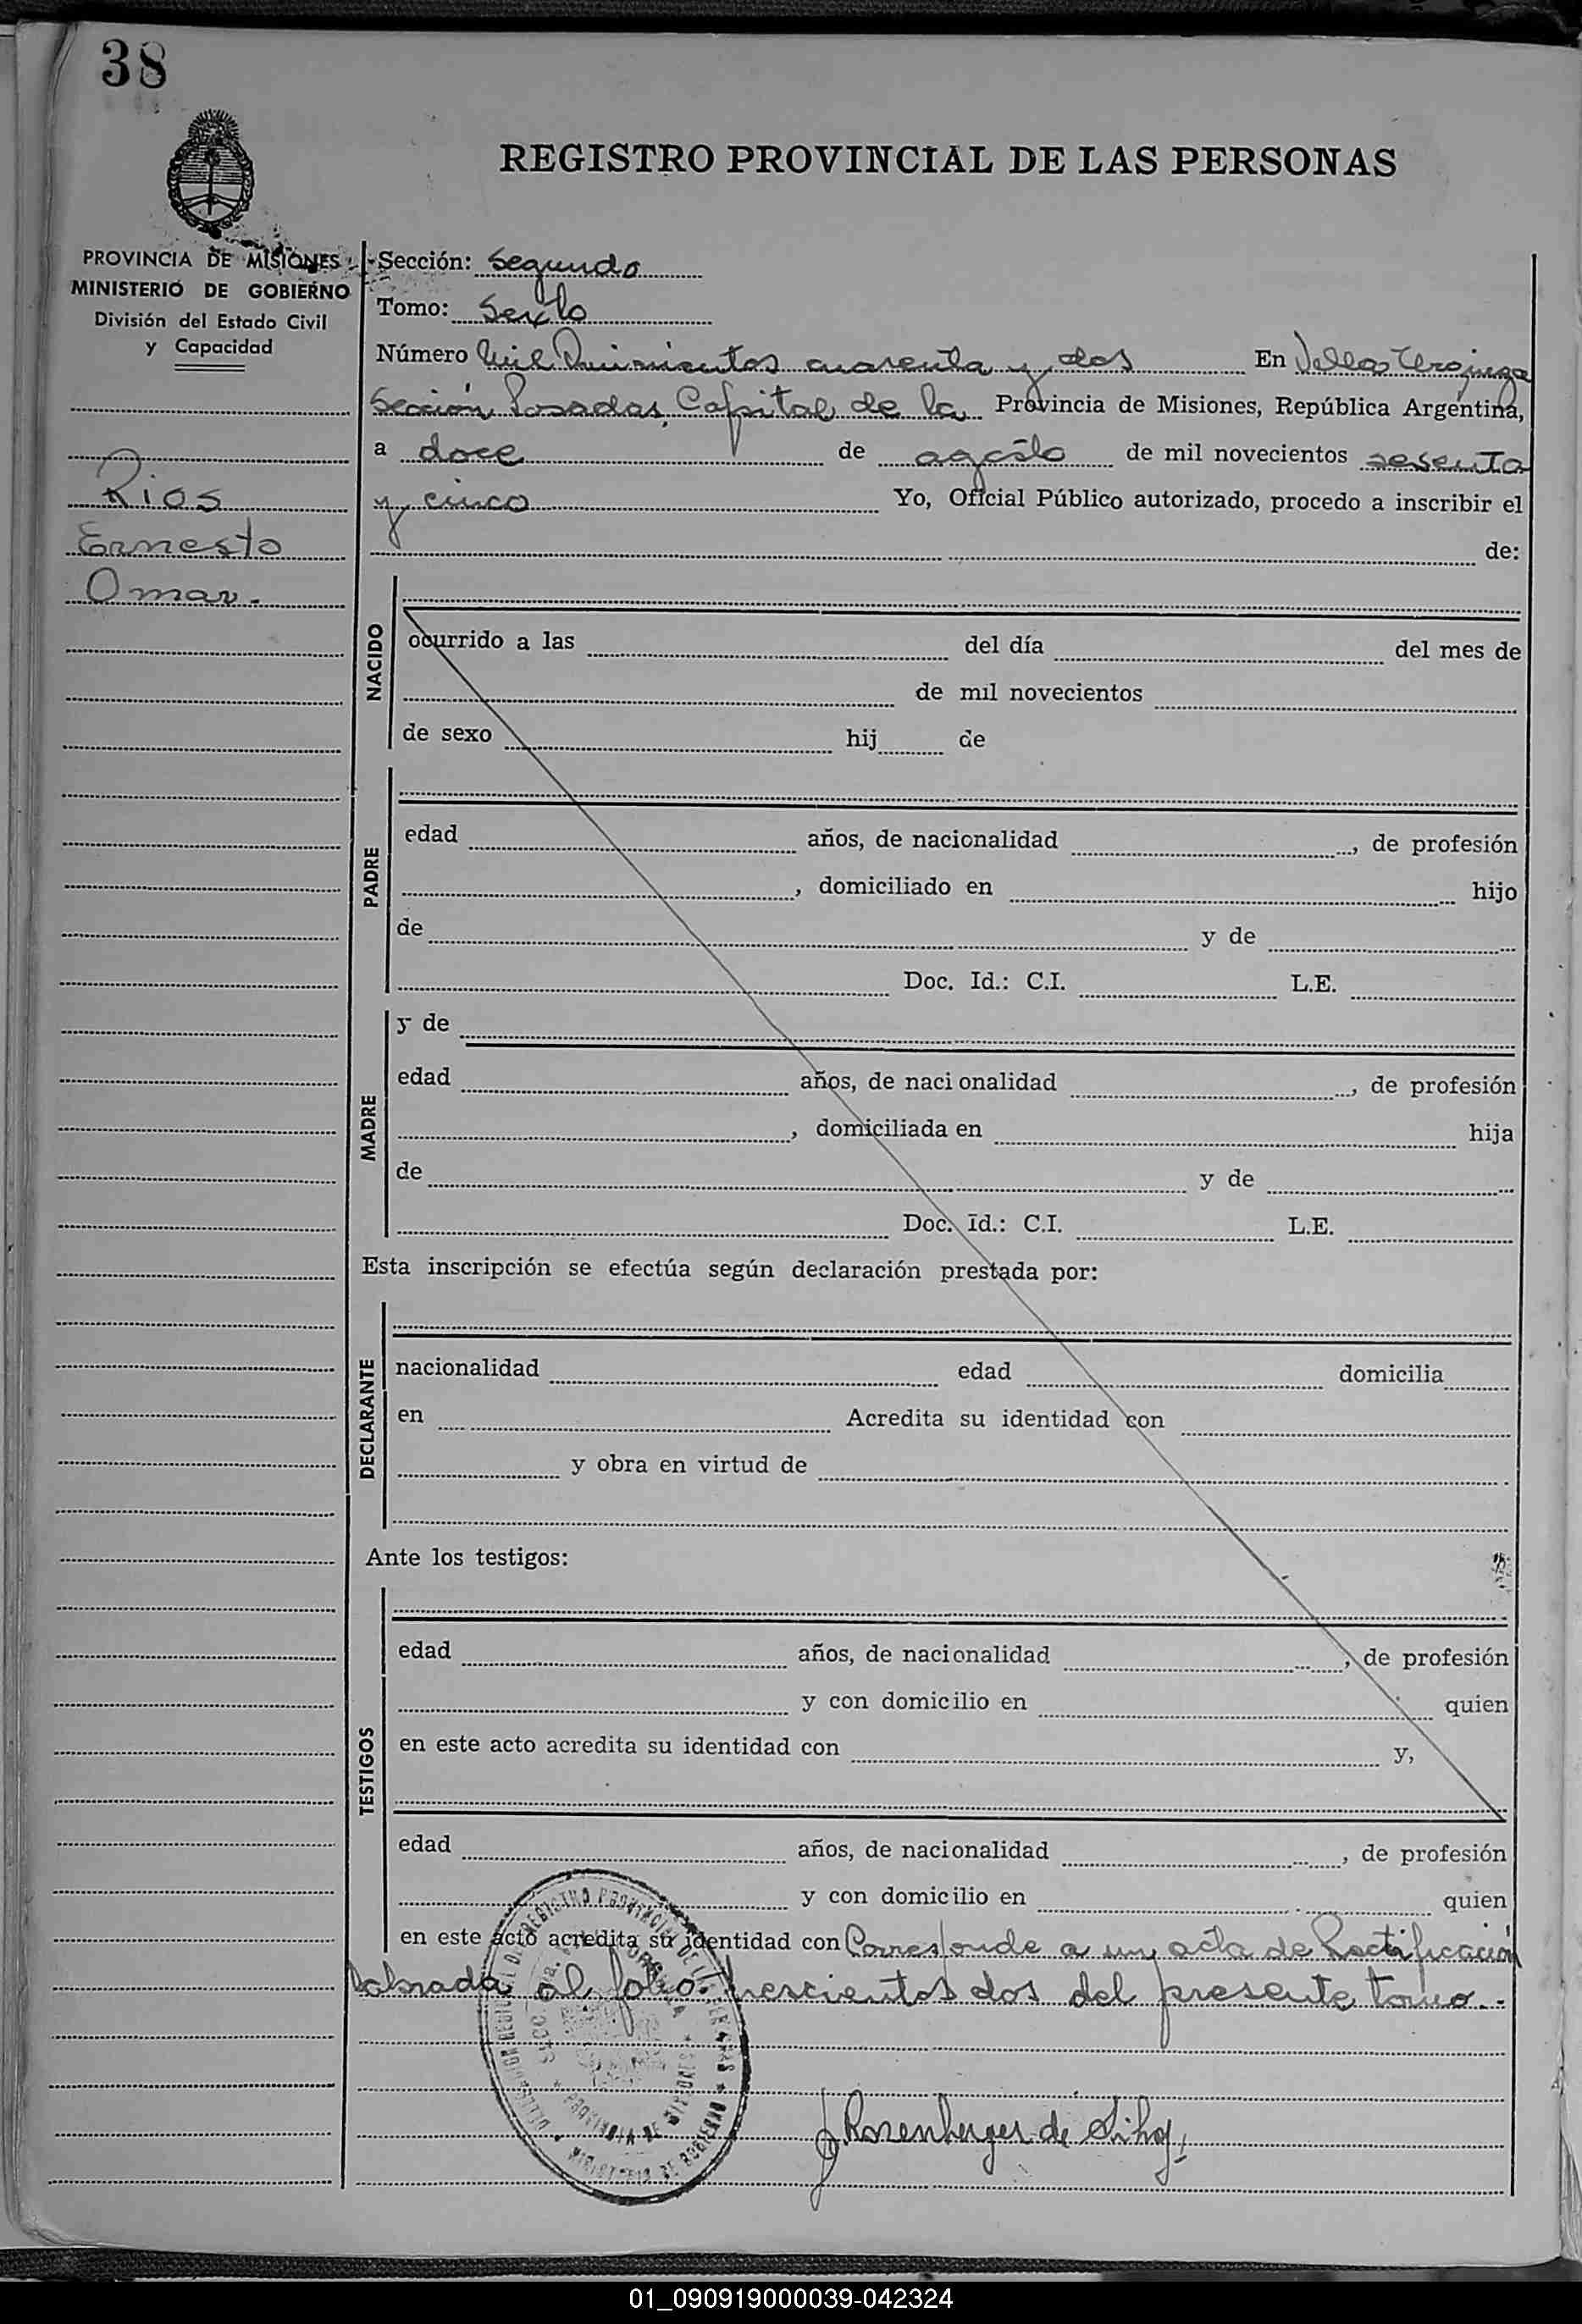 38
REGISTRO PROVINCIAL DE LAS PERSONAS
PROVINCIA DE MISIONES
MINISTERIO DE GOBIERNO
División del Estado Civil
y Capacidad
Rios
Ernesto
Omar.-
Sección: Segunda
Tomo: Sexto
Número Mil Quinientos cuarenta y dos En
Sección Posadas, Capital de la Provincia de Misiones, República Argentina,
a doce de agosto de mil novecientos sesenta
y cinco Yo, Oficial Público autorizado, procedo a inscribir el
de:
NACIDO
ocurrido a las del día del mes de
de mil novecientos
de sexo hij de
PADRE
edad años, de nacionalidad , de profesión
, domiciliado en hijo
de y de
Doc. Id.: C.I. L.E.
MADRE
y de
edad años, de naci onalidad , de profesión
, domiciliada en hija
de y de
Doc. Id.: C.I. L.E.
Esta inscripción se efectúa según declaración prestada por:
DECLARANTE
nacionalidad edad domicilia
en Acredita su identidad con
y obra en virtud de
Ante los testigos:
TESTIGOS
edad años, de nacionalidad , de profesión
y con domicilio en quien
en este acto acredita su identidad con y,
edad años, de nacionalidad , de profesión
y con domicilio en quien
en este acto acredita su identidad con Corresponde a un acta de Rectificación
labrada al folio trescientos dos del presente tomo.-
PROVINCIA DE MISIONES
MINISTERIO DE GOBIERNO
Rosenberger de
01_090919000039-042324